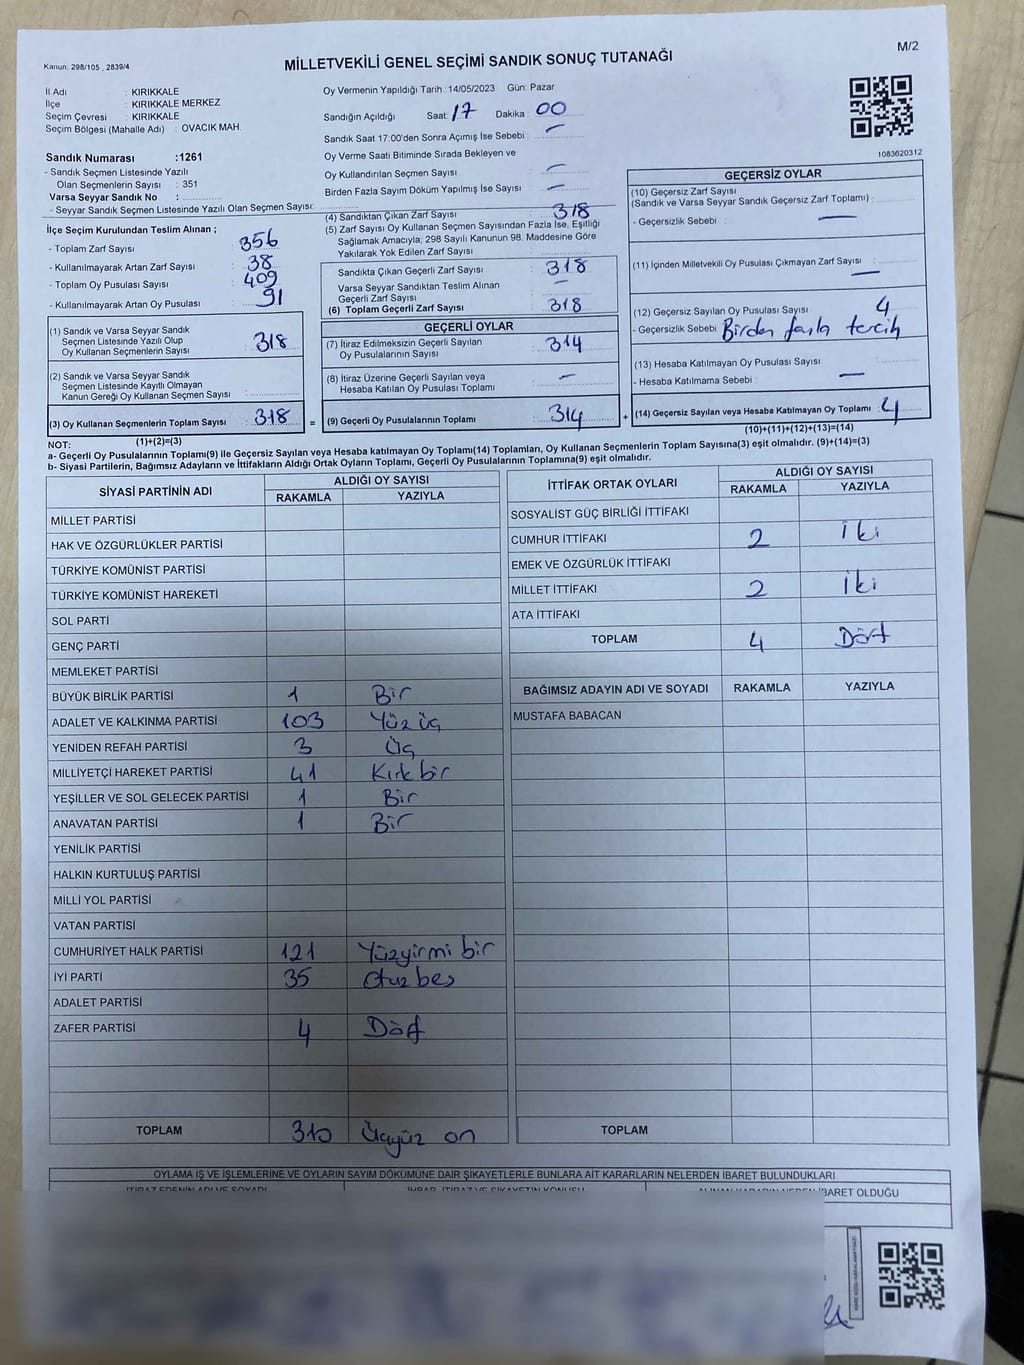 M/2
Kanun: 298/105 , 2839/4
MİLLETVEKİLİ GENEL SEÇİMİ SANDIK SONUÇ TUTANAĞI
İl Adı : KIRIKKALE
İlçe : KIRIKKALE MERKEZ
Seçim Çevresi : KIRIKKALE
Seçim Bölgesi (Mahalle Adı) : OVACIK MAH.
Sandık Numarası :1261
- Sandık Seçmen Listesinde Yazılı
Olan Seçmenlerin Sayısı : 351
Varsa Seyyar Sandık No :
- Seyyar Sandık Seçmen Listesinde Yazılı Olan Seçmen Sayısı:
Oy Vermenin Yapıldığı Tarih :14/05/2023 Gün: Pazar
Sandığın Açıldığı Saat: 17 Dakika : 00
Sandık Saat 17:00'den Sonra Açımış İse Sebebi : —
Oy Verme Saati Bitiminde Sırada Bekleyen ve
Oy Kullandırılan Seçmen Sayısı : —
Birden Fazla Sayım Döküm Yapılmış İse Sayısı : —
1083620312
İlçe Seçim Kurulundan Teslim Alınan ;
- Toplam Zarf Sayısı : 356
- Kullanılmayarak Artan Zarf Sayısı : 38
- Toplam Oy Pusulası Sayısı : 409
- Kullanılmayarak Artan Oy Pusulası : 91
(1) Sandık ve Varsa Seyyar Sandık
Seçmen Listesinde Yazılı Olup
Oy Kullanan Seçmenlerin Sayısı : 318
(2) Sandık ve Varsa Seyyar Sandık
Seçmen Listesinde Kayıtlı Olmayan
Kanun Gereği Oy Kullanan Seçmen Sayısı :
(3) Oy Kullanan Seçmenlerin Toplam Sayısı : 318 =
(1)+(2)=(3)
(4) Sandıktan Çıkan Zarf Sayısı : 318
(5) Zarf Sayısı Oy Kullanan Seçmen Sayısından Fazla İse, Eşitliği
Sağlamak Amacıyla; 298 Sayılı Kanunun 98. Maddesine Göre
Yakılarak Yok Edilen Zarf Sayısı :
Sandıkta Çıkan Geçerli Zarf Sayısı : 318
Varsa Seyyar Sandıktan Teslim Alınan
Geçerli Zarf Sayısı : —
(6) Toplam Geçerli Zarf Sayısı : 318
GEÇERLİ OYLAR
(7) İtiraz Edilmeksizin Geçerli Sayılan
Oy Pusulalarının Sayısı : 314
(8) İtiraz Üzerine Geçerli Sayılan veya
Hesaba Katılan Oy Pusulası Toplamı : —
(9) Geçerli Oy Pusulalarının Toplamı : 314 +
GEÇERSİZ OYLAR
(10) Geçersiz Zarf Sayısı
(Sandık ve Varsa Seyyar Sandık Geçersiz Zarf Toplamı) :
- Geçersizlik Sebebi : —
(11) İçinden Milletvekili Oy Pusulası Çıkmayan Zarf Sayısı : —
(12) Geçersiz Sayılan Oy Pusulası Sayısı : 4
- Geçersizlik Sebebi : Birden fazla tercih
(13) Hesaba Katılmayan Oy Pusulası Sayısı :
- Hesaba Katılmama Sebebi : —
(14) Geçersiz Sayılan veya Hesaba Katılmayan Oy Toplamı : 4
(10)+(11)+(12)+(13)=(14)
NOT:
a- Geçerli Oy Pusulalarının Toplamı(9) ile Geçersiz Sayılan veya Hesaba katılmayan Oy Toplamı(14) Toplamları, Oy Kullanan Seçmenlerin Toplam Sayısına(3) eşit olmalıdır. (9)+(14)=(3)
b- Siyasi Partilerin, Bağımsız Adayların ve İttifakların Aldığı Ortak Oyların Toplamı, Geçerli Oy Pusulalarının Toplamına(9) eşit olmalıdır.
SİYASİ PARTİNİN ADI ALDIĞI OY SAYISI
RAKAMLA YAZIYLA
MİLLET PARTİSİ
HAK VE ÖZGÜRLÜKLER PARTİSİ
TÜRKİYE KOMÜNİST PARTİSİ
TÜRKİYE KOMÜNİST HAREKETİ
SOL PARTİ
GENÇ PARTİ
MEMLEKET PARTİSİ
BÜYÜK BİRLİK PARTİSİ 1 Bir
ADALET VE KALKINMA PARTİSİ 103 Yüz üç
YENİDEN REFAH PARTİSİ 3 Üç
MİLLİYETÇİ HAREKET PARTİSİ 41 Kırk bir
YEŞİLLER VE SOL GELECEK PARTİSİ 1 Bir
ANAVATAN PARTİSİ 1 Bir
YENİLİK PARTİSİ
HALKIN KURTULUŞ PARTİSİ
MİLLİ YOL PARTİSİ
VATAN PARTİSİ
CUMHURİYET HALK PARTİSİ 121 Yüzyirmi bir
İYİ PARTİ 35 Otuz beş
ADALET PARTİSİ
ZAFER PARTİSİ 4 Dört
TOPLAM 310 Üçyüz on
İTTİFAK ORTAK OYLARI ALDIĞI OY SAYISI
RAKAMLA YAZIYLA
SOSYALİST GÜÇ BİRLİĞİ İTTİFAKI
CUMHUR İTTİFAKI 2 İki
EMEK VE ÖZGÜRLÜK İTTİFAKI
MİLLET İTTİFAKI 2 İki
ATA İTTİFAKI
TOPLAM 4 Dört
BAĞIMSIZ ADAYIN ADI VE SOYADI RAKAMLA YAZIYLA
MUSTAFA BABACAN
TOPLAM
OYLAMA İŞ VE İŞLEMLERİNE VE OYLARIN SAYIM DÖKÜMÜNE DAİR ŞİKAYETLERLE BUNLARA AİT KARARLARIN NELERDEN İBARET BULUNDUKLARI
İTİRAZ EDENİN ADI VE SOYADI İHBAR, İTİRAZ VE ŞİKAYETİN KONUSU ALINAN KARARIN NEDEN İBARET OLDUĞU